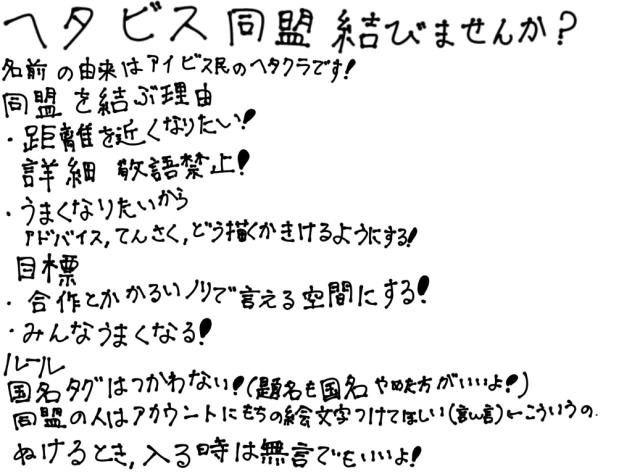 ヘタビス同盟結びませんか?
名前の由来はアイビス民のヘタクラです!
同盟を結ぶ理由
・距離を近くなりたい!
詳細 敬語禁止!
・うまくなりたいから
アドバイス,てんさく,どう描くかきけるようにする!
目標
・合作とかかるいノリで言える空間にする!
・みんなうまくなる!
ルール
国名タグはつかわない!(題名も国名やめた方がいいよ!)
同盟の人はアカウントにもちの絵文字つけてほしい()←こういうの.
ぬけるとき,入る時は無言でもいいよ!